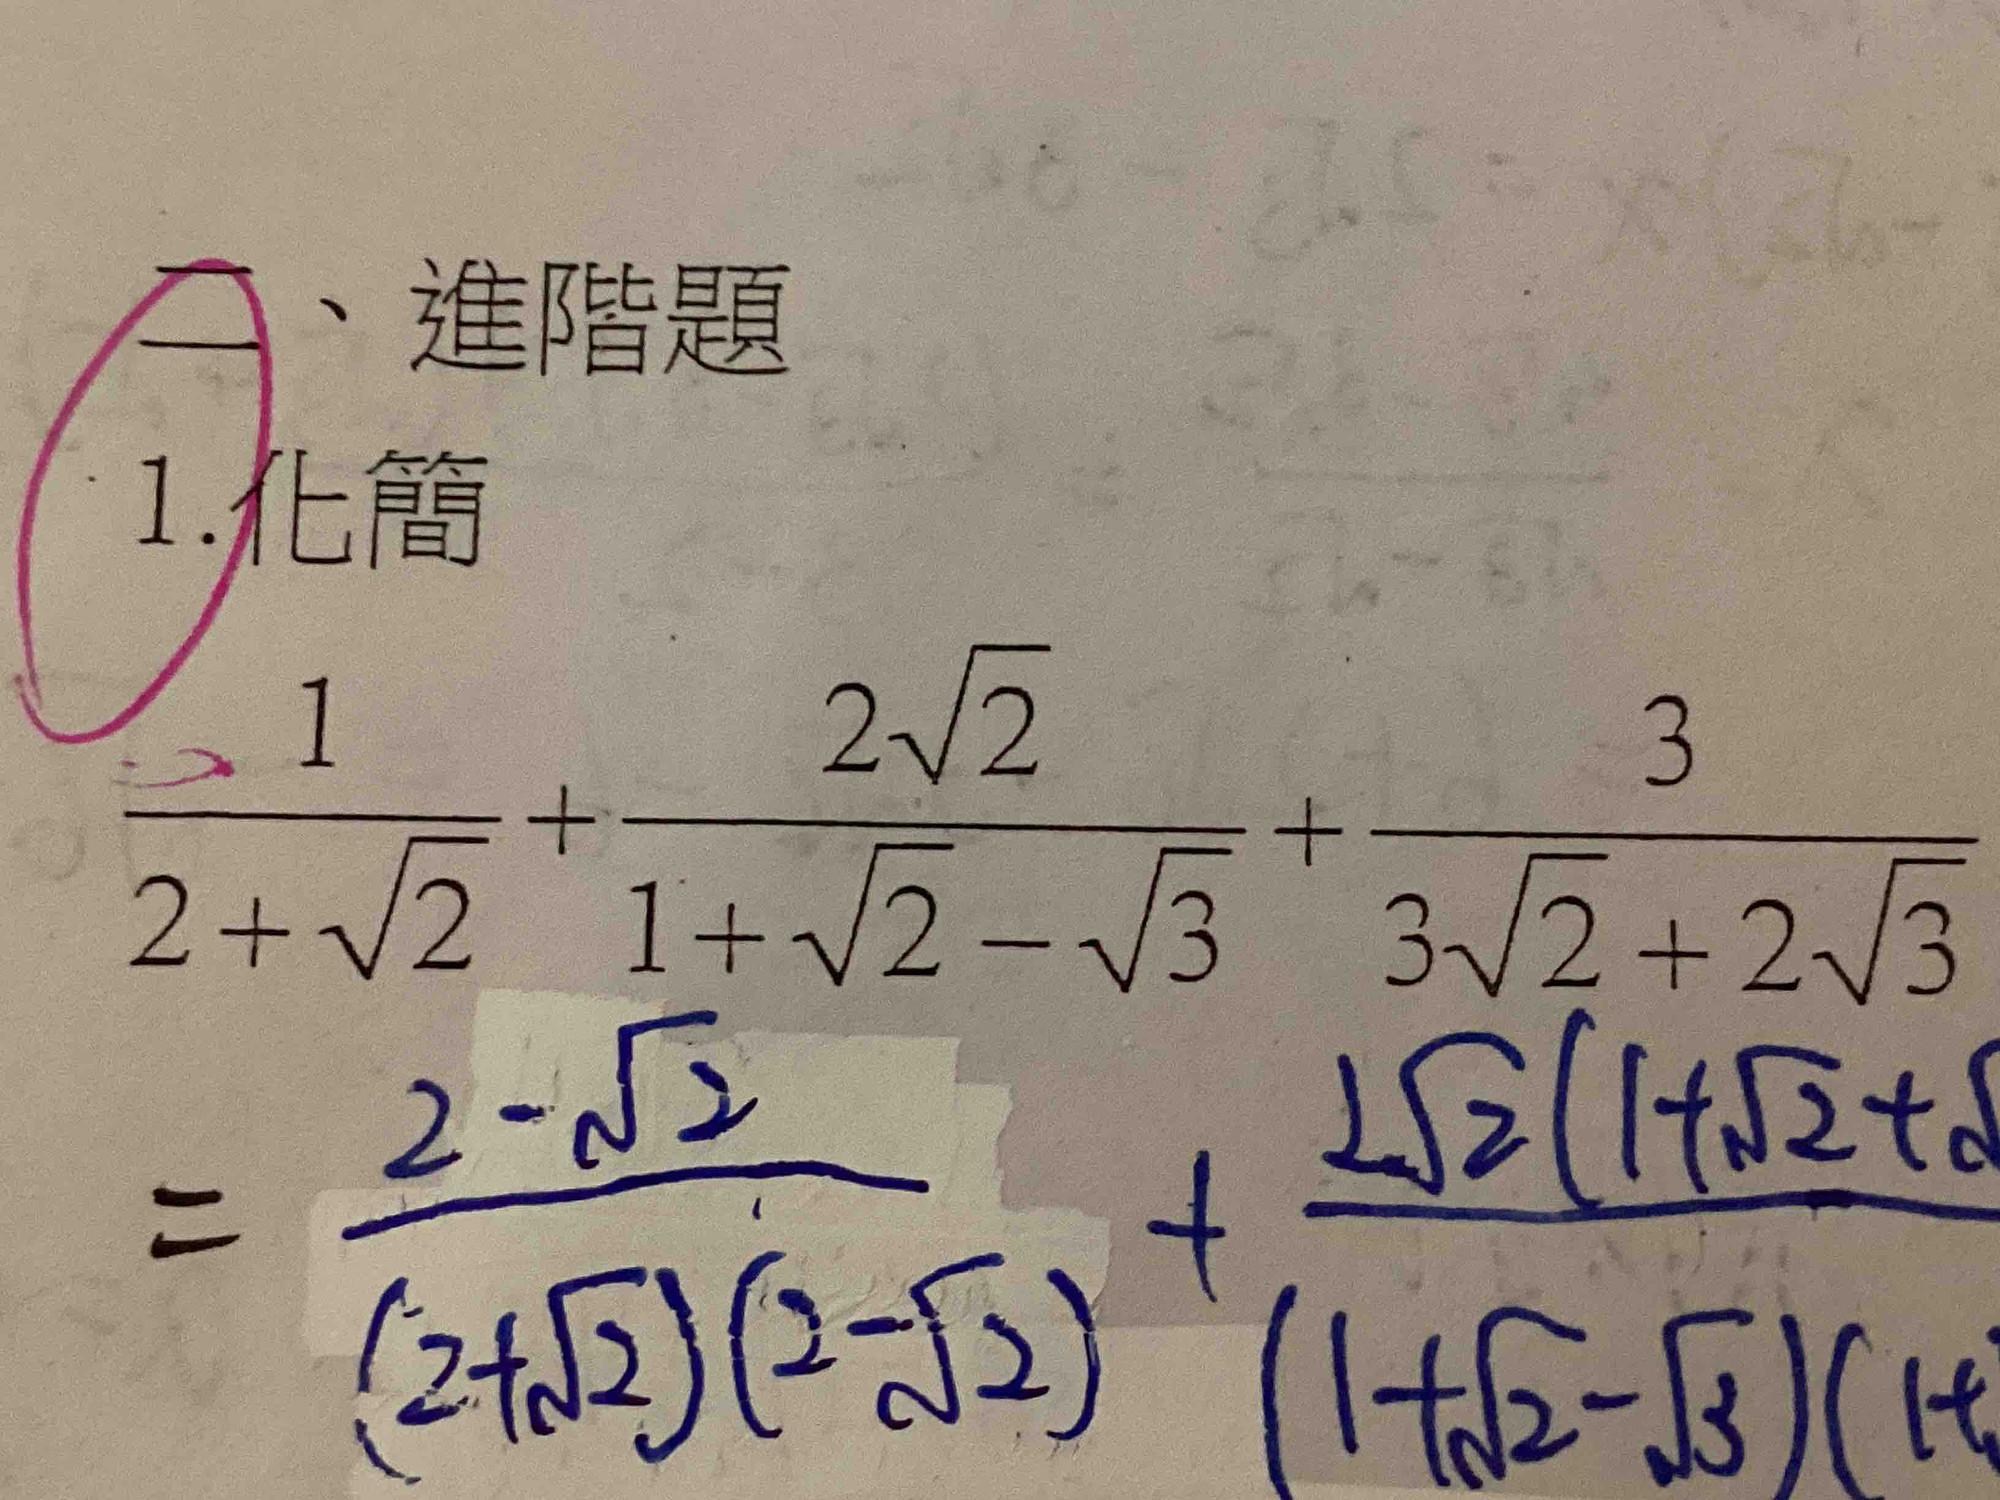 二、進階題
1.化簡
1/(2+√2) + 2√2/(1+√2−√3) + 3/(3√2+2√3)
= (2-√2)/((2+√2)(2-√2)) + 2√2(1+√2+√ / (1+√2-√3)(1+